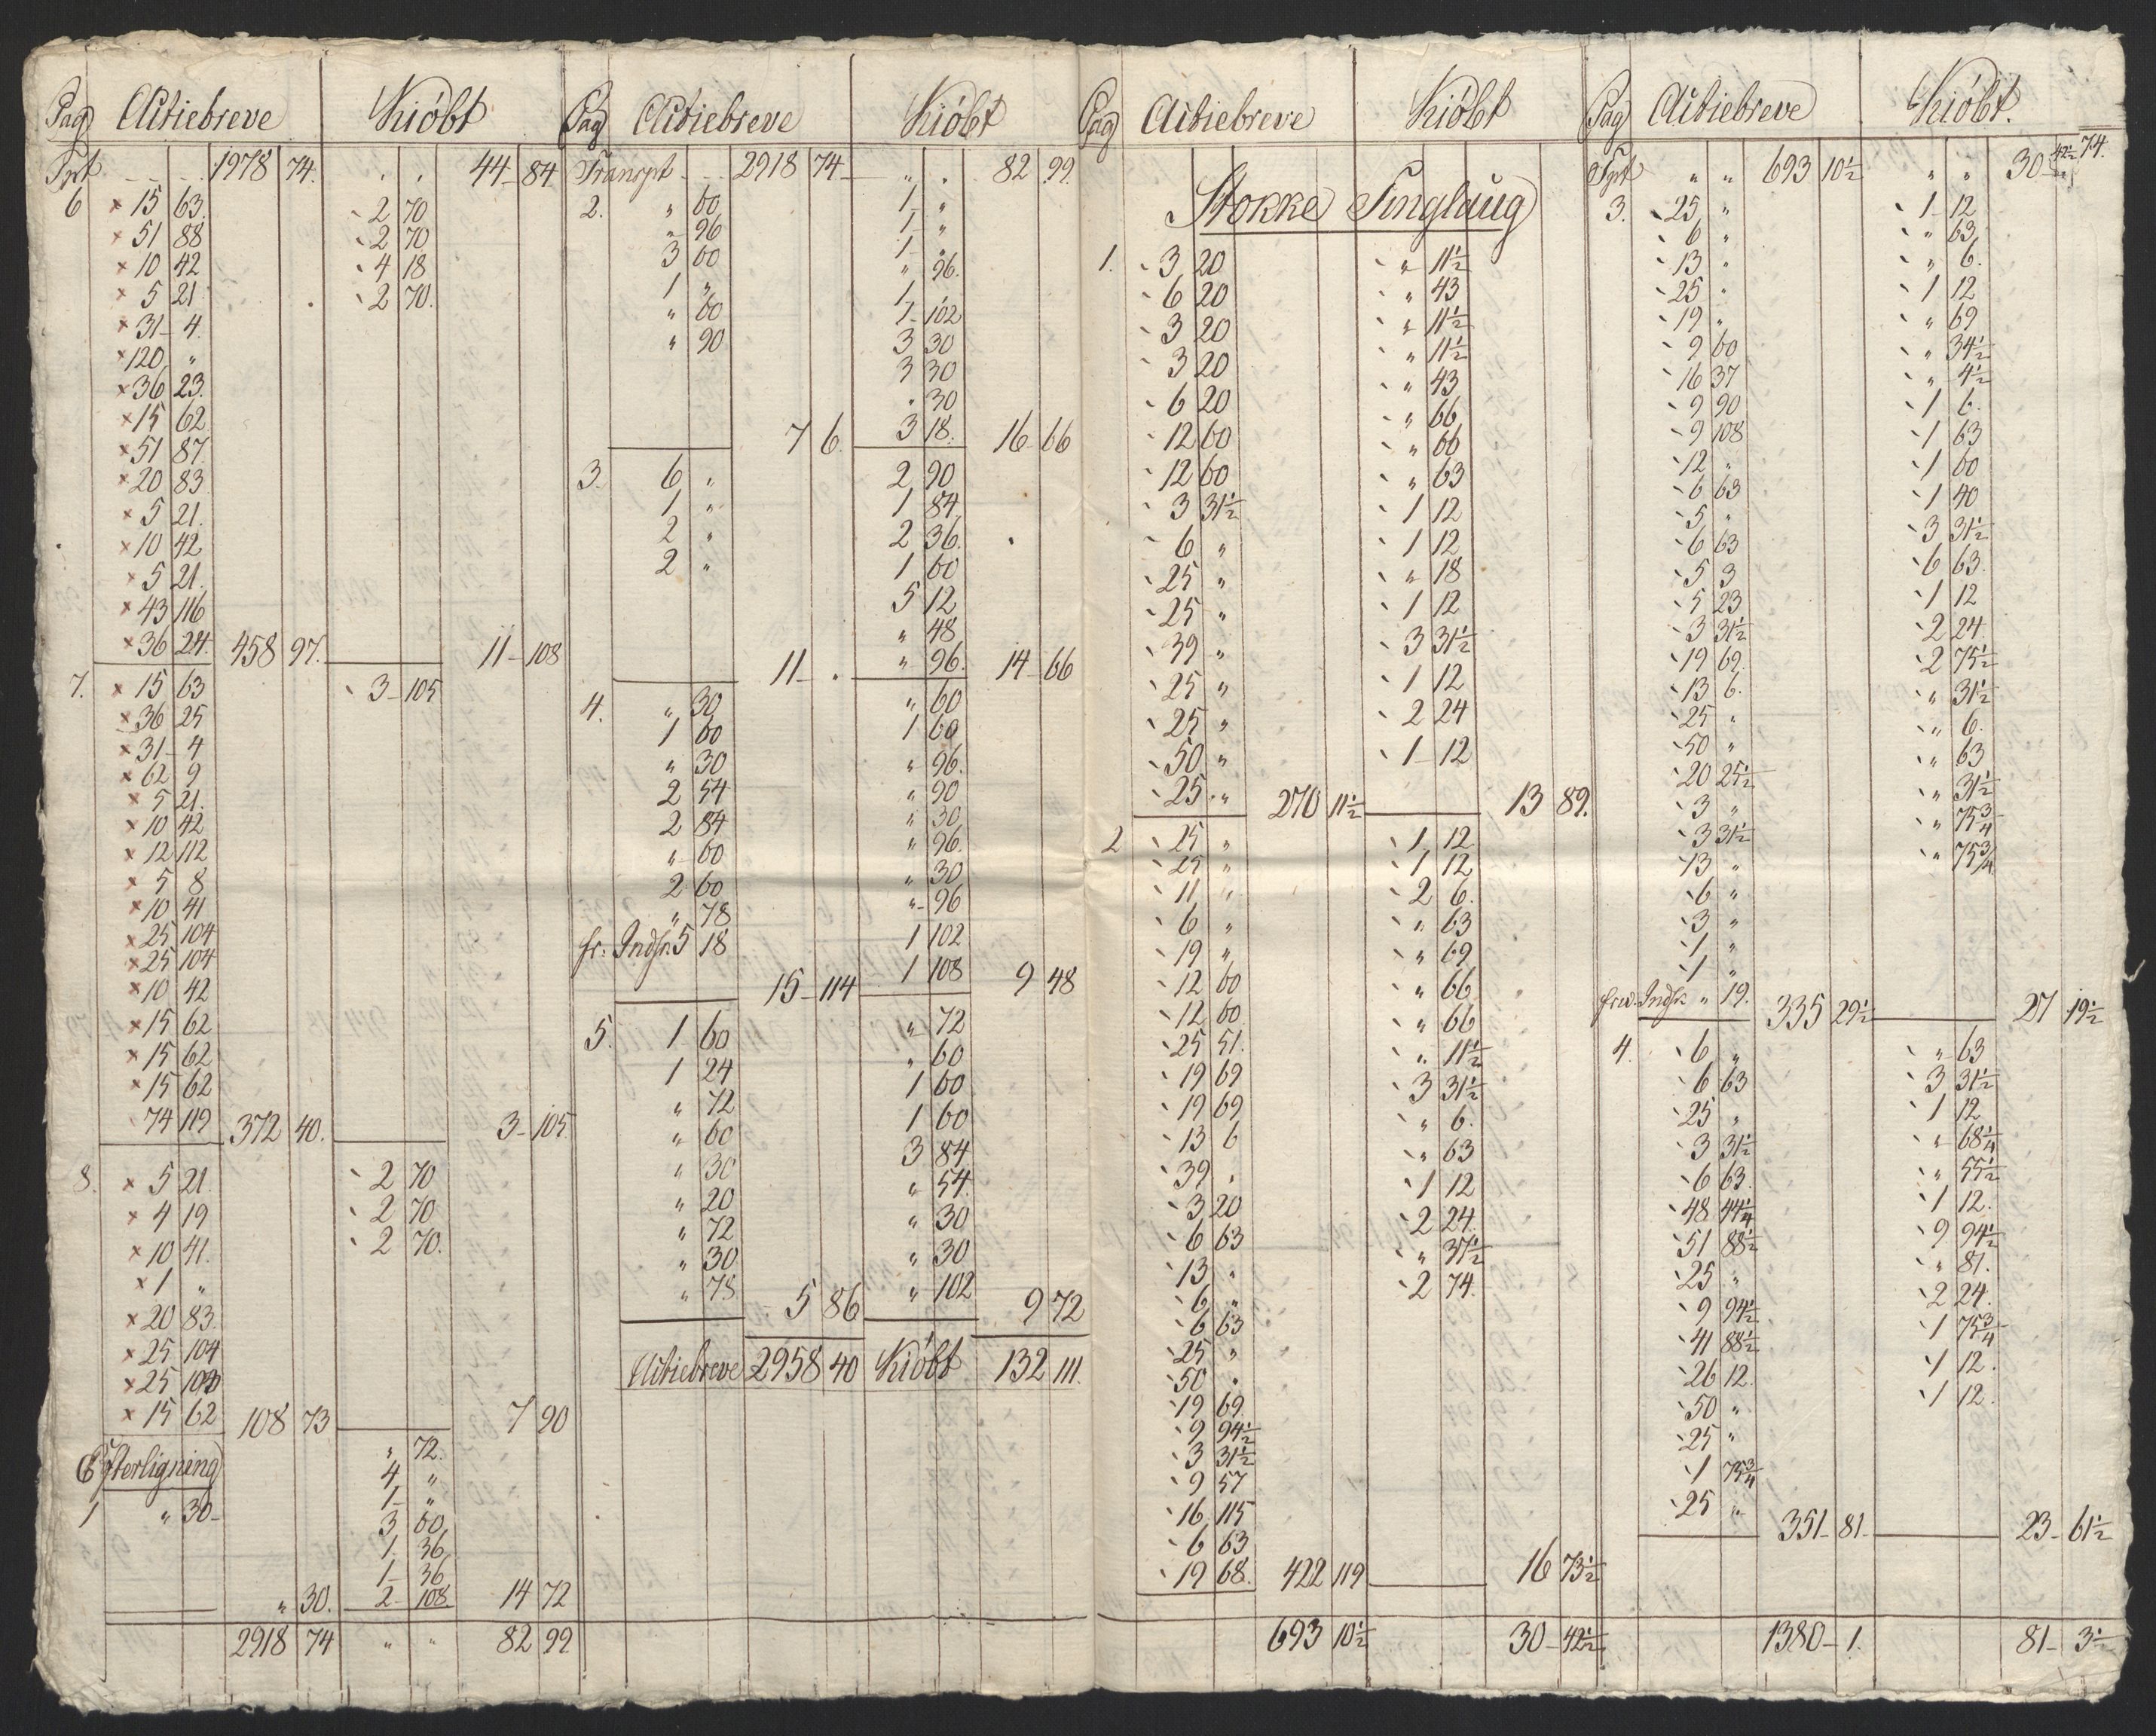 Pag Actiebreve Kiöbt
Tpt 1978 74. " " 44 - 84
6 × 15 63. 2 70
× 51 88 2 70
× 10 42 4 18
× 5 21 2 70.
× 31 - 4.
× 120 "
× 36 23.
× 15 62
× 51 87
× 20 83
× 5 21.
× 10 42
× 5 21.
× 43 116
× 36 24. 458 97. 11 - 108
7. × 15 63 3 - 105
× 36 25
× 31 - 4
× 62 9
× 5 21.
× 10 42
× 12 112
× 5 8
× 10 41
× 25 104
× 25 104
× 10 42
× 15 62
× 15 62
× 15 62
74 119 372 40. 3 - 105
8. × 5 21. 2 70
× 4 19 2 70
× 10 41. 2 70.
× 1 "
× 20 83.
× 25 104
× 25 104
× 15 62 108 73 7 90
Efterligning " 72.
4 "
1 - "
1 " 30 - 3 60
1 36
1 - 36
" 30. 2 - 108. 14 72
2918 74 " " 82 99
Pag Actiebreve Kiöbt
Transpt 2918 74 " . 82 99.
2. " 60 1 "
" 96 1 "
3 60 1 "
1 " " 96.
" 60 1 "
" 90 1 - 102
3 30
3 30
" 30
7 6. 3 18. 16 - 66
3. 6 " 2 90
1 " 1 84
2 " 2 36.
2 " 1 60
5 12
" 48
11 - . " 96. 14 - 66
4. " 30 " 60
1 60 1 60
" 30 " 96.
2 54 " 90
2 84 " 30
" 60 " 96.
2 60 " 30
" 78 " 96
fr. Indfr. 5 18 1 102
15 - 114 1 108 9 48
5. 1 60 " 72
1 24 " 60
" 72 1 60
" 60 1 60
" 30 3 84
" 20 " 54.
" 72 " 30
" 30 " 30
" 78 5 86 " 102 9 72
Actiebreve 2958 40 Kiöbt 132 111.
Pag Actiebreve Kiöbt
Stokke Tinglaug
1. 3 20 " 11½
6 20 " 43
3 20 " 11½
3 20 " 11½
6 20 " 43
12 60 " 66
12 60 " 66
3 31½ " 63
6 " 1 12
25 " 1 12
25 " " 18
39 " 1 12
25 " 3 31½
25 " 1 12
50 " 2 24
25 " 270 11½ 1 - 12 13 89.
2 25 " 1 12
25 " 1 12
11 " 2 6.
6 " " 63
19 " " 69
12 60 " 66
12 60 " 66
25 51. " 11½
19 69 3 31½
19 69 " 6.
13 6 " 63
39 " 1 12
3 20 2 24.
6 63 " 37½
13 " 2 74.
6 "
6 63
25 "
50 "
19 69
9 94½
3 31½
9 57
16 115
6 63
19 68. 422 119 16 73½
693 10½ 30 - 42½
Pag Actiebreve Kiöbt.
Tpt " " 693 10½ " " 30 42½ 74.
3. 25 " 1 - 12
6 " " 63
13 " " 6.
25 " 1 12
19 " " 69
9 60 " 34½
16 37 " 4½
9 90 1 6.
9 108 1 63
12 " 1 60
6 63 1 40
5 " 3 31½
6 63 6 63.
5 3 1 12
5 23 2 24.
3 31½ 2 75½
19 69. " 31½
13 6. " 6.
25 " " 63
50 " " 31½
20 25½ " 75¾
3 " " 75¾
3 31½
13 "
6 "
3 "
1 "
1 "
" 19. 335 29½ 27 19½
4. 6 " " 63
6 63 3 31½
25 " 1 12
3 31½ " 68¼
6 63. " 55½
48 44¼ 1 12.
51 88½ 9 94½
25 " " 81.
9 94½ 2 24.
41 88½ 1 75¾
26 12. 1 12.
50 " 1 12.
25 "
1 75¾
25 " 351 - 81 - 23 - 61½
1380 - 1. 81 - 3½